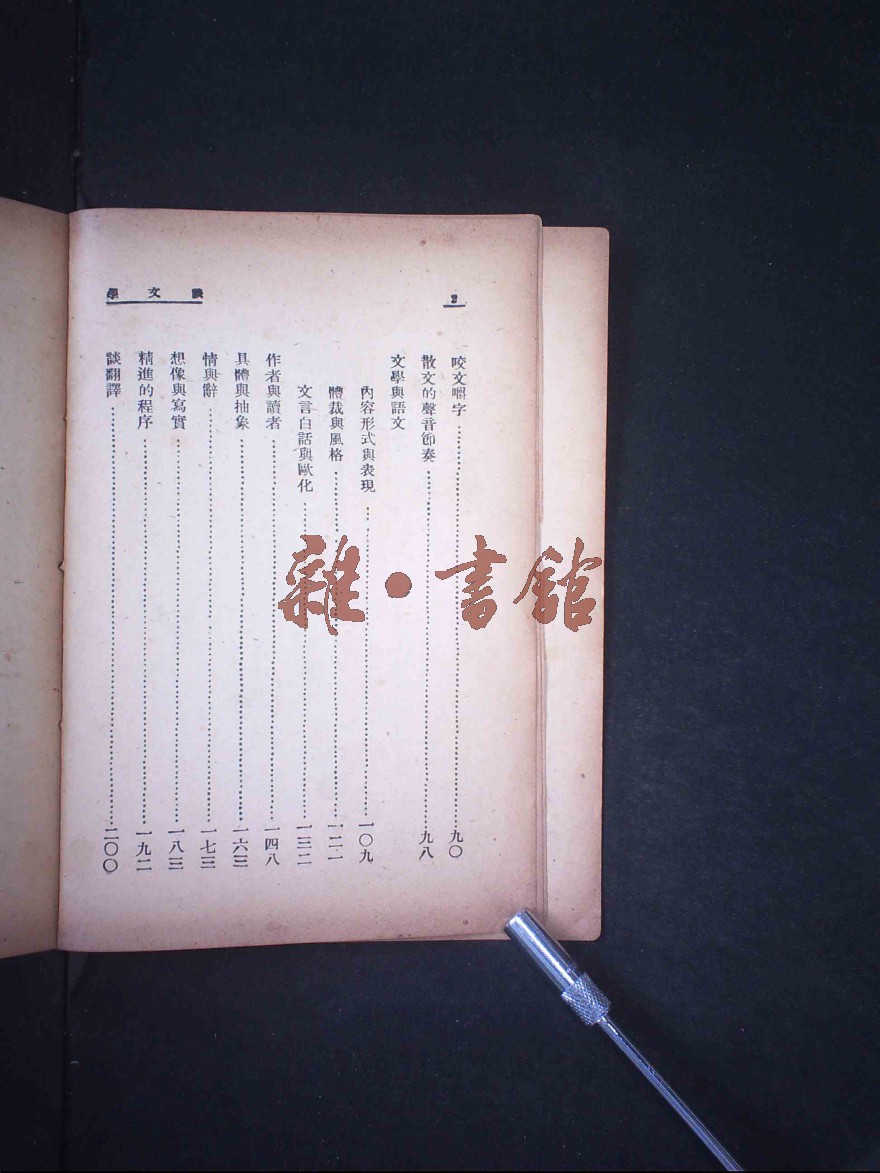 談文學
2
咬文嚼字 九〇
散文的聲音節奏 九八
文學與語文
內容形式與表現 一〇九
體裁與風格 一二一
文言白話與歐化 一三二
作者與讀者 一四八
具體與抽象 一六三
情與辭 一七三
想像與寫實 一八三
精進的程序 一九二
談翻譯 二〇〇
雜·書館